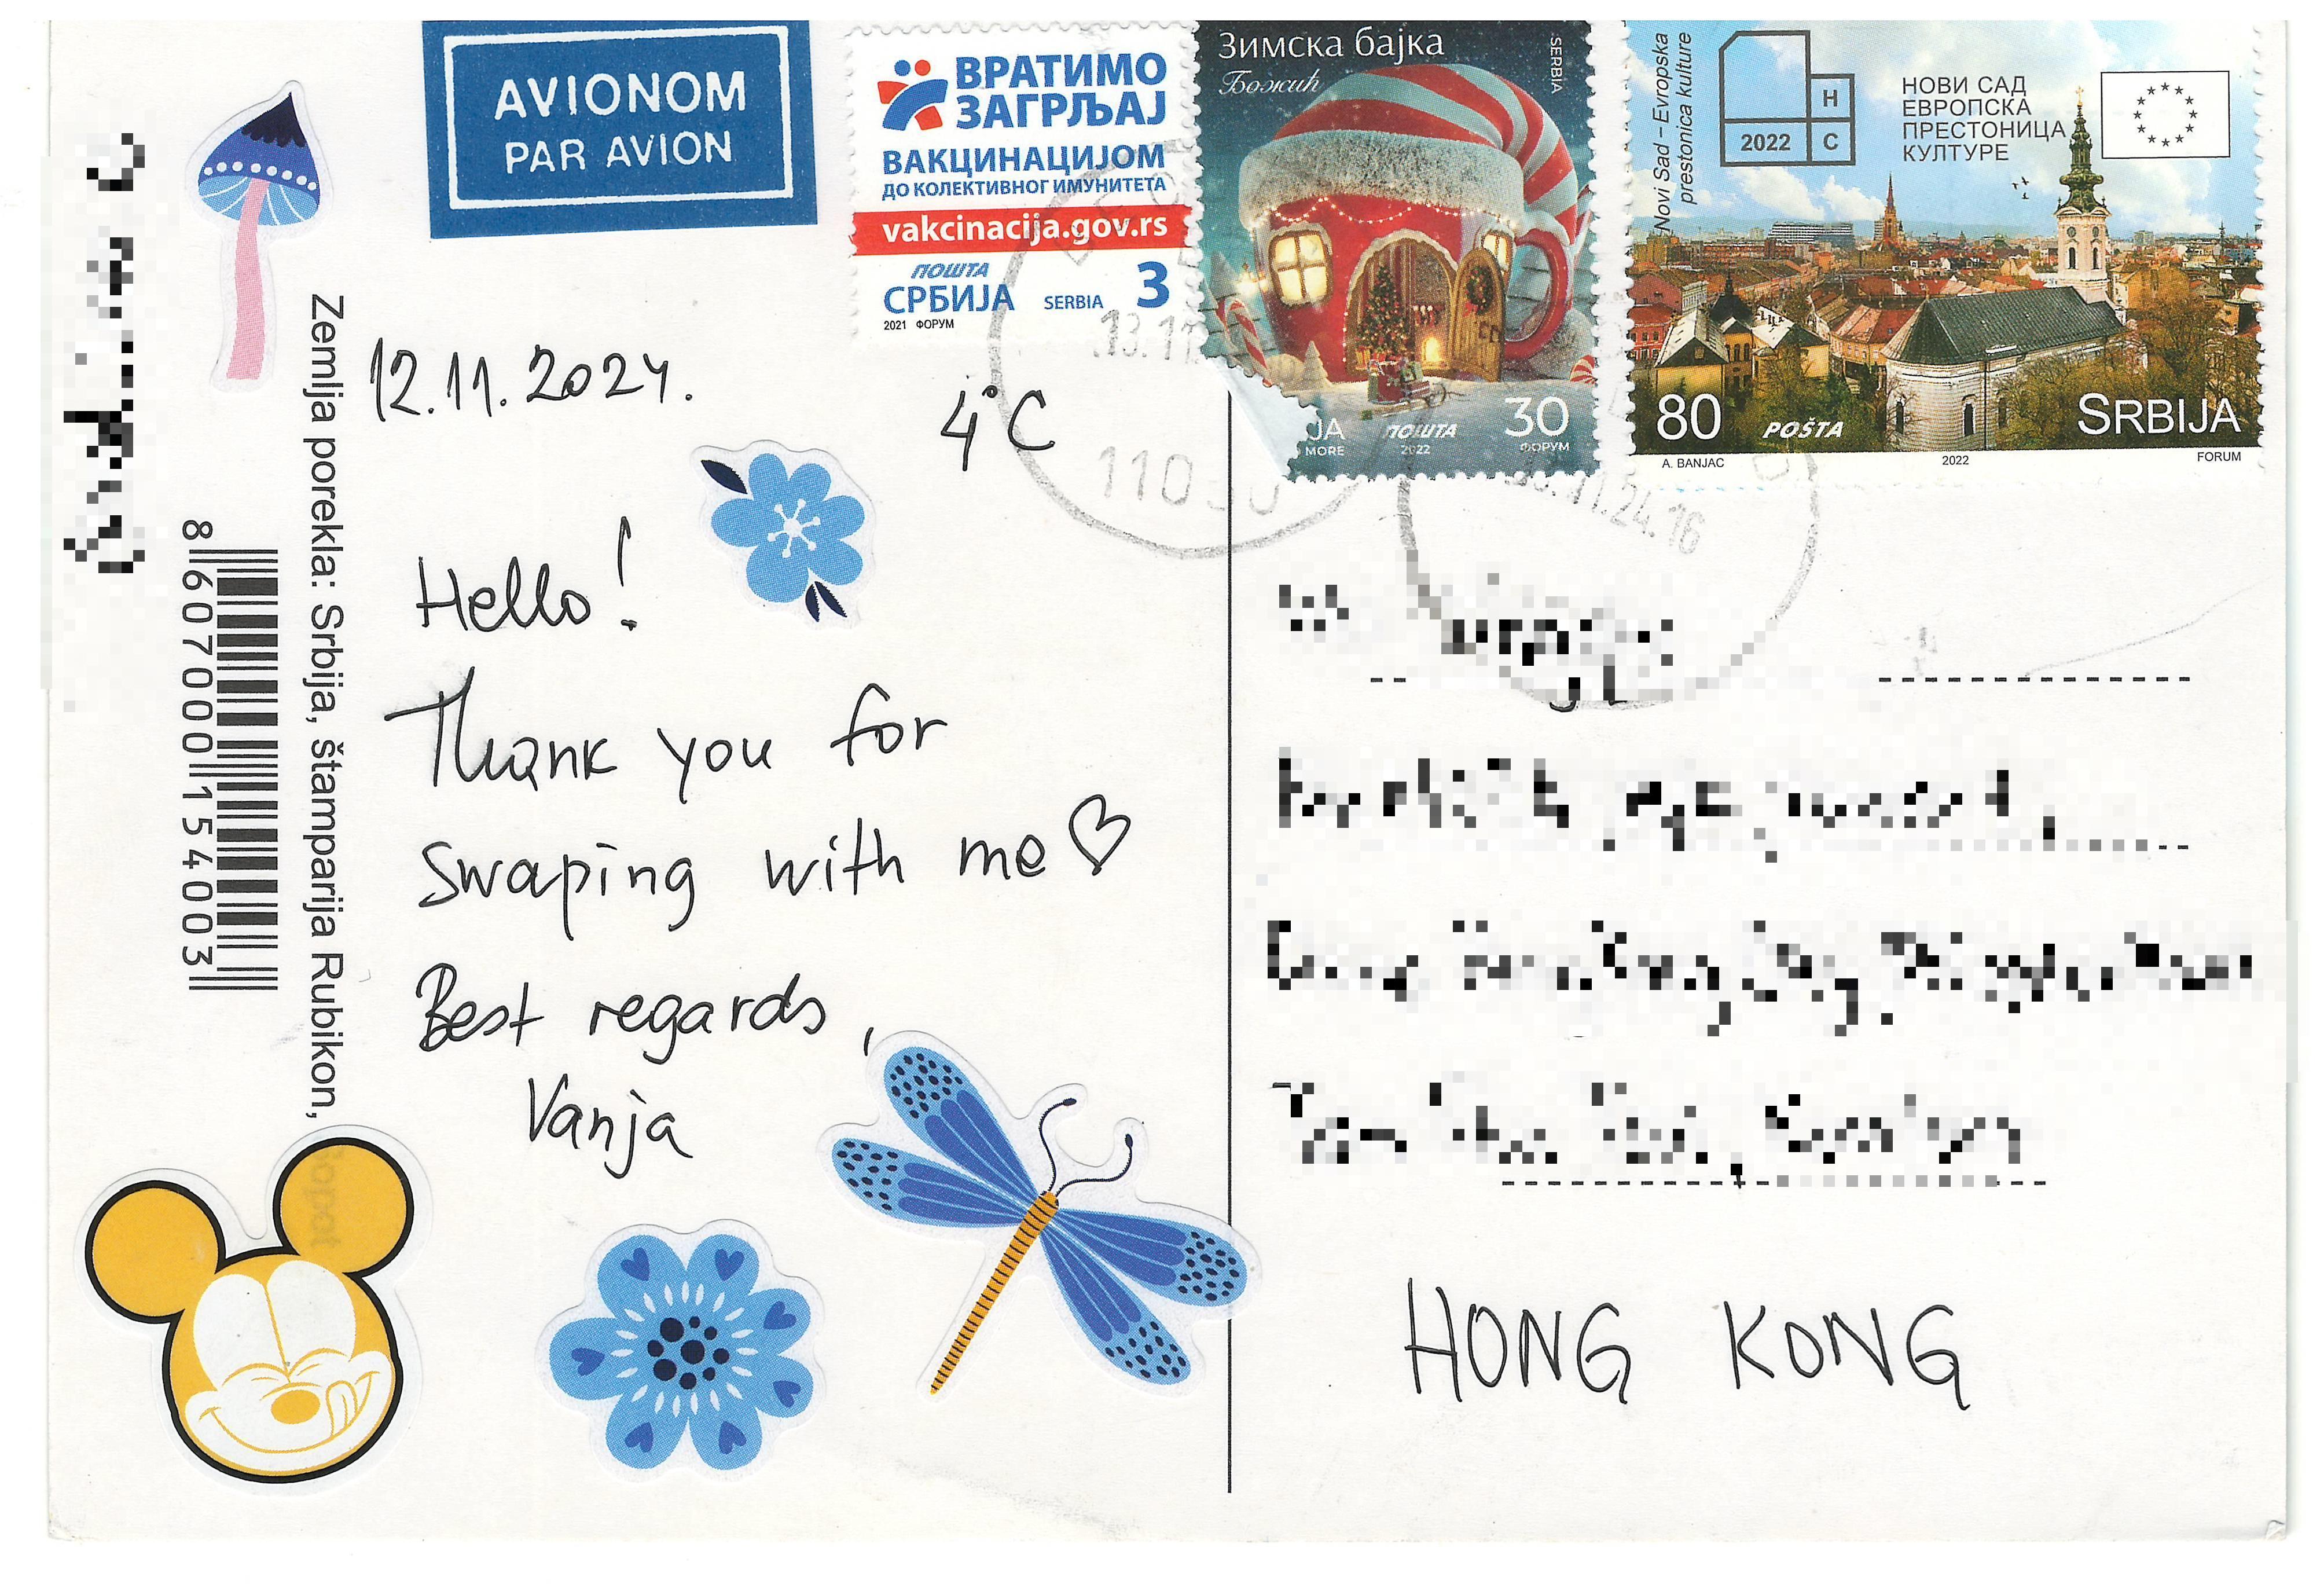 AVIONOM
PAR AVION
ВРАТИМО
ЗАГРЉАЈ
ВАКЦИНАЦИЈОМ
ДО КОЛЕКТИВНОГ ИМУНИТЕТА
vakcinacija.gov.rs
ПОШТА
СРБИЈА SERBIA 3
2021 ФОРУМ
Зимска бајка
Божић
SERBIA
JA ПОШТА 30
MORE 2022 ФОРУМ
Novi Sad – Evropska
prestonica kulture
Н
2022 С
НОВИ САД
ЕВРОПСКА
ПРЕСТОНИЦА
КУЛТУРЕ
80 POŠTA SRBIJA
A. BANJAC 2022 FORUM
.11.24.16
12.11.2024.
4°C
Hello!
Thank you for
swaping with me ♡
Best regards,
Vanja
Zemlja porekla: Srbija, štamparija Rubikon,
8 607000 154003
HONG KONG